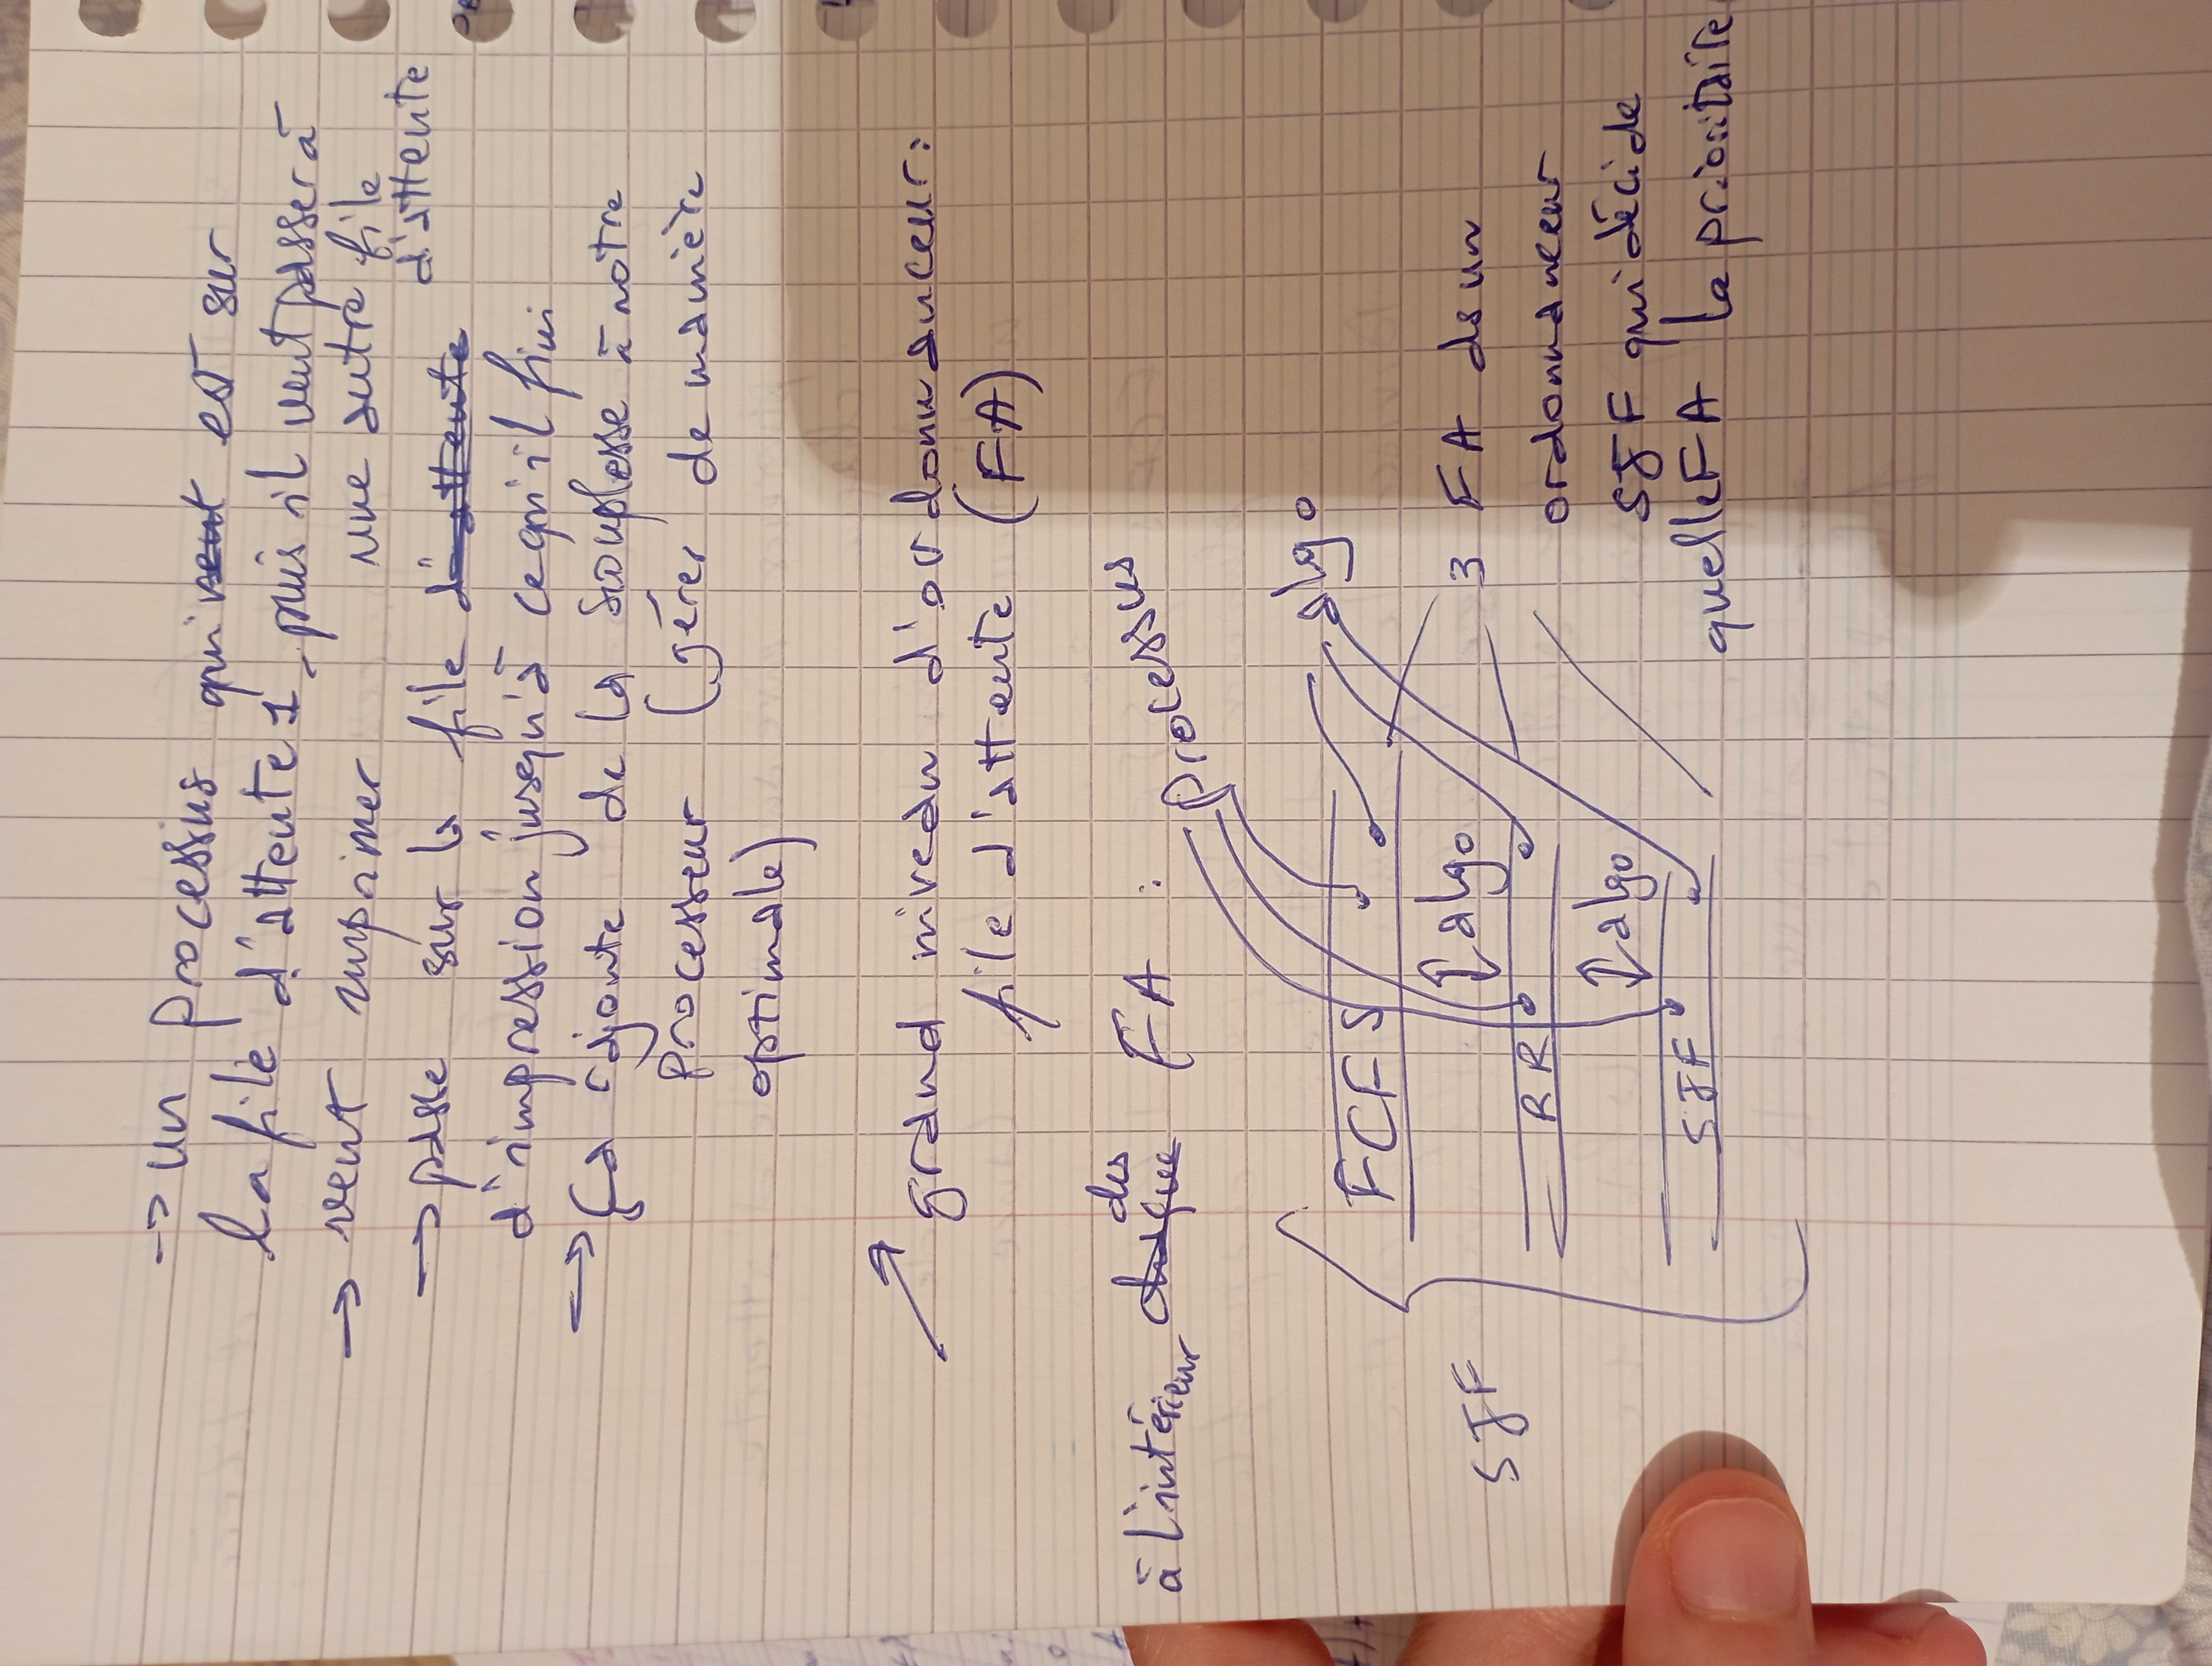 → un processus qui veut est sur
la file d'attente 1 puis il veut passer à
une autre file
d'attente
→ veut imprimer
→ passe sur la file d'attente
d'impression jusqu'à ce qu'il fini
→ ça rajoute de la souplesse à notre
processeur (gérer de manière
optimale)
→ grand niveau d'ordonnanceur :
file d'attente (FA)
à l'intérieur chaque des FA :
processus
algo
FCFS
↕ algo
RR
↕ algo
SJF
SJF
3 FA ds un
ordonnanceur
SJF qui décide
quelle FA la prioritaire